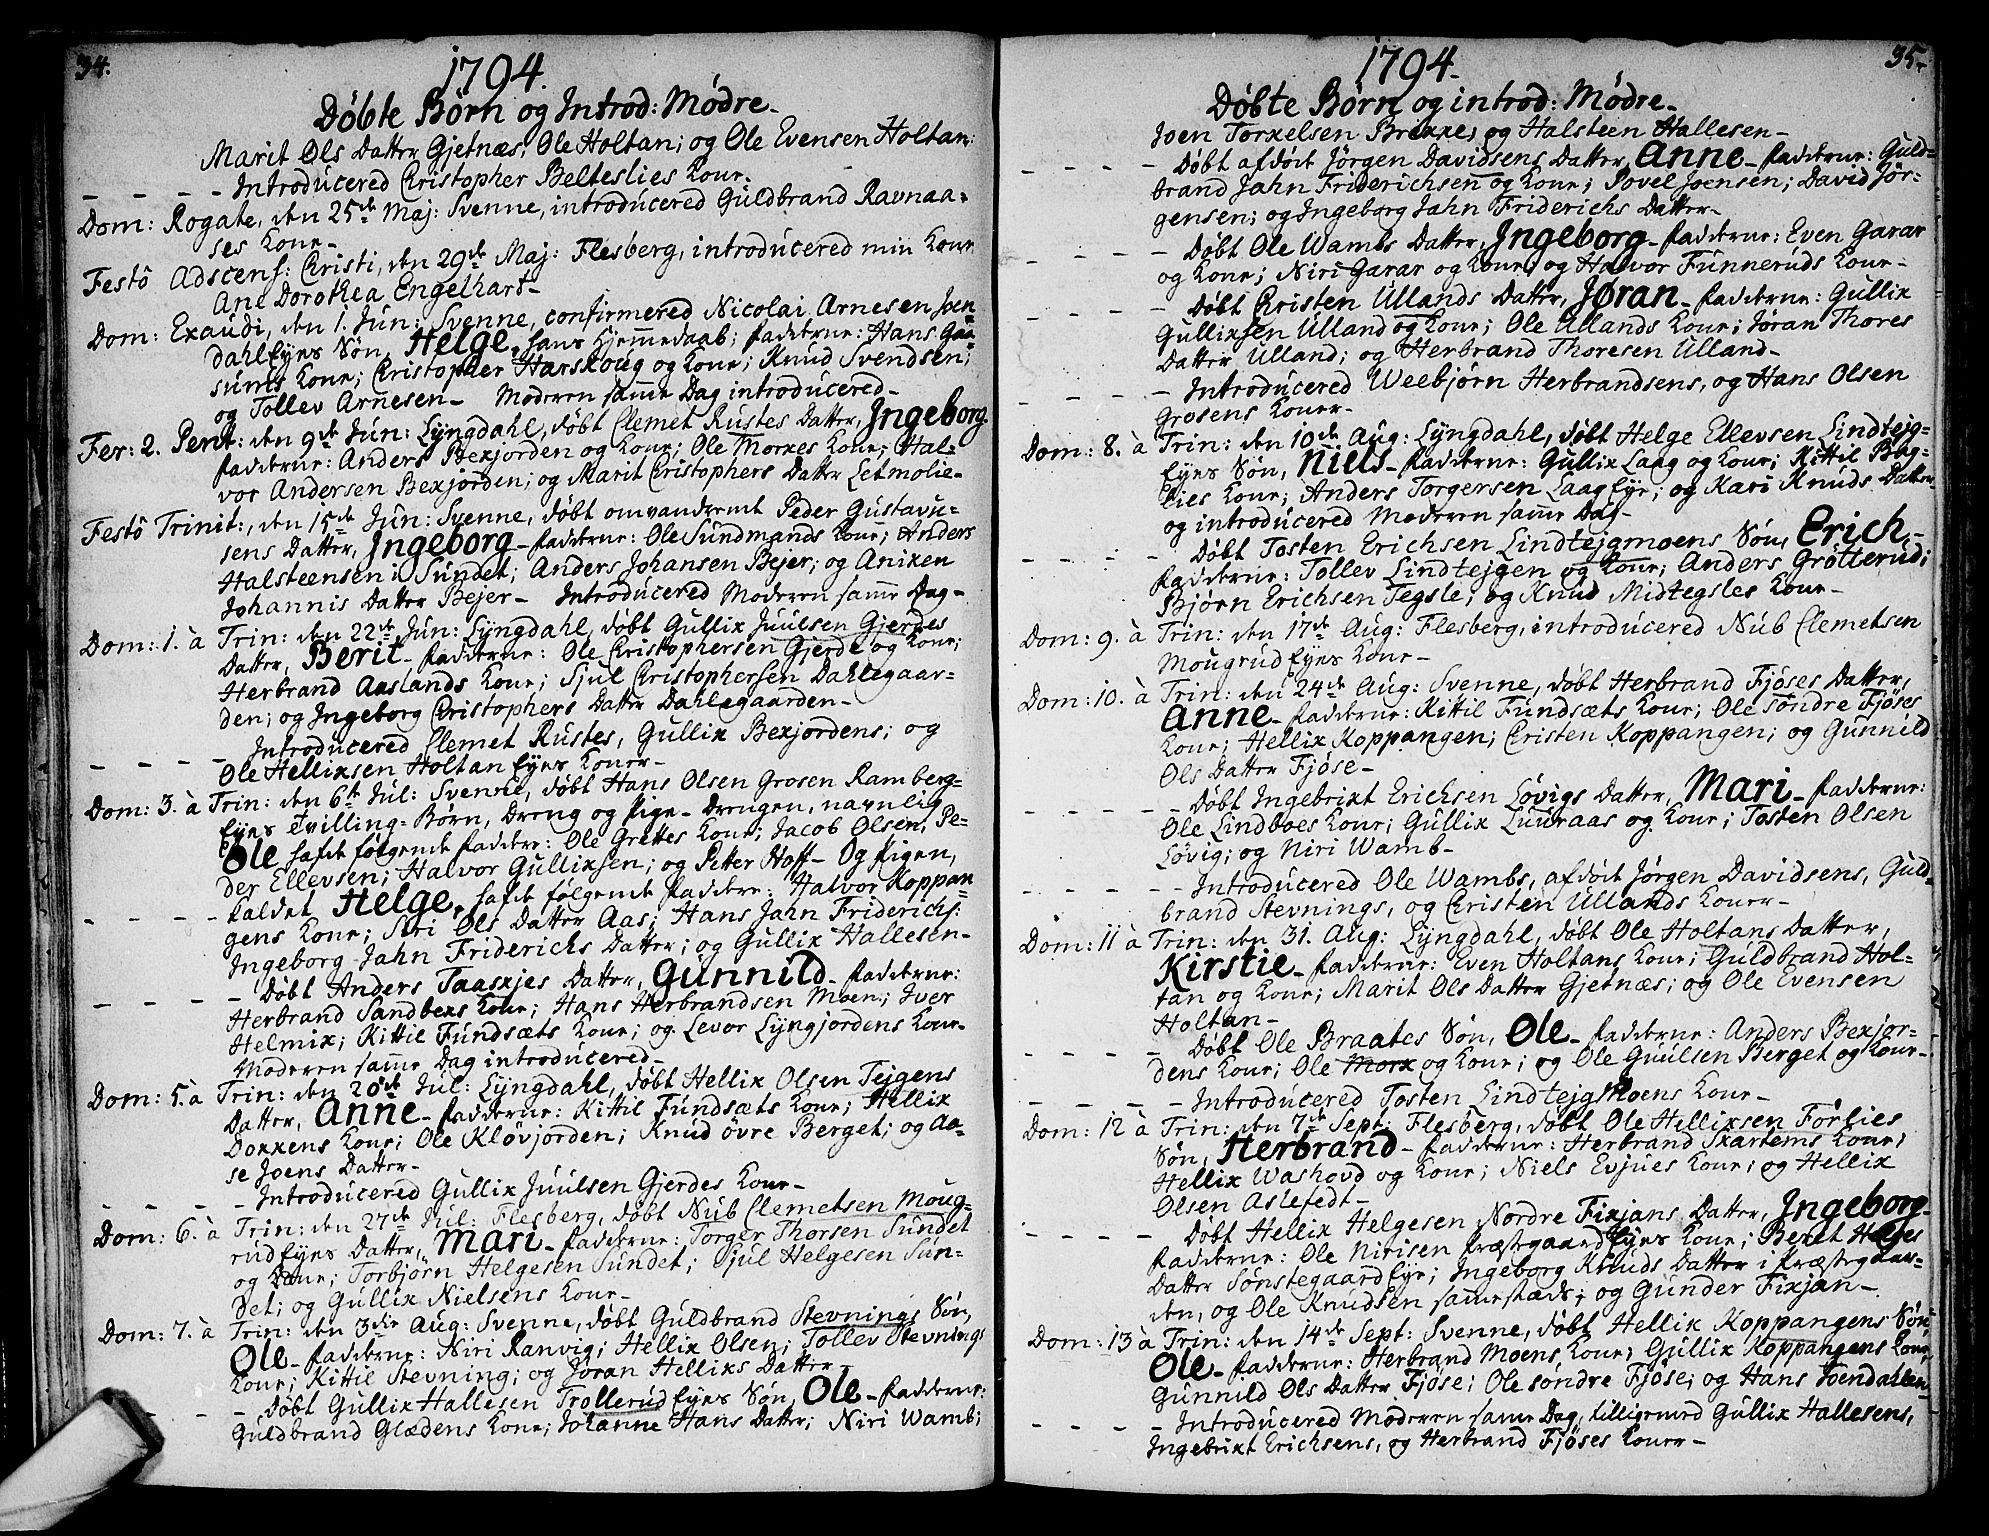 34.
1794.
Døbte Børn og Introd: Mødre_
Marit Ols Datter Gjetnæs; Ole Holtan; og Ole Evensen Holtan:
_ _ _ _ Introducered Christopher Belteslies Kone_
Dom: Rogate, den 25de Maj: Svenne, introducered Guldbrand Ravnaa=
ses Kone_
Festo Adscens: Christi, den 29de Maj: Flesberg, introducered min Kone
Ane Dorothea Engelhart_
Dom: Exaudi, den 1. Jun: Svenne, confirmered Nicolai Arnesen Joen=
dahl Eyes Søn, Helge, hans Hjemmedaab; Fadderne: Hans Gaa=
sums Kone; Christopher Harskoug og Kone; Knud Svendsen;
og Tollev Arnesen_ Moderen samme Dag introducered_
Fer: 2. Pent: den 9de Jun: Lyngdahl, døbt Clemet Rustes Datter, Ingeborg_
Fadderne: Anders Bexjorden og Kone; Ole Morkes Kone; Hal=
vor Andersen Bexjorden; og Marit Christophers Datter Letmolie_
Festo Trinit:, den 15de Jun: Svenne, døbt omvankrende Peder Gustavu=
sens Datter, Ingeborg_ Fadderne: Ole Sundmands Kone; Anders
Halsteensen i Sundet; Anders Johansen Bejer; og Aniken
Johannis Datter Bejer_ Introducered Moderen samme Dag_
Dom: 1. à Trin: den 22de Jun: Lyngdahl, døbt Gullik Juulsen Gjerdes
Datter, Berit_ Fadderne: Ole Christophersen Gjerde og Kone;
Herbrand Aaslands Kone; Sjul Christophersen Dahlegaar=
den; og Ingeborg Christophers Datter Dahlegaarden_
_ _ _ _ Introducered Clemet Rustes, Gullik Bexjordens; og
Ole Helliksen Holtan Eyes Koner_
Dom: 3. à Trin: den 6te Jul: Svenne, døbt Hans Olsen Grosen Ramberg=
Eyes Tvilling=Børn, Dreng og Pige_ Drengen, navnlig
Ole hafde følgende Faddere: Ole Grettes Kone; Jacob Olsen; Pe=
der Ellevsen; Halvor Gulliksen; og Petter Hoff_ Og Pigen,
kaldet Helge, hafde følgende Faddere: Halvor Koppan=
gens Kone; Siri Ols Datter Aas; Hans Jahn Friderichs:
Ingeborg Jahn Friderichs Datter; og Gullik Hallesen_
_ _ _ _ Døbt Anders Taaskjes Datter, Gunnild_ Fadderne:
Herbrand Sandbeks Kone; Hans Herbrandsen Moen; Iver
Helmik; Kittil Fundsæts Kone; og Levor Lyngjordens Kone_
Moderen samme Dag introducered_
Dom: 5. à Trin: den 20de Jul: Lyngdahl, døbt Hellik Olsen Tejgens
Datter, Anne_ Fadderne: Kittil Fundsæts Kone; Hellik
Dokkens Kone; Ole Kløvjorden; Knud øvre Berget; og Aa=
se Joens Datter_
_ _ _ _ Introducered Gullik Juulsen Gjerdes Kone_
Dom: 6. à Trin: den 27de Jul: Flesberg, døbt Nub Clemetsen Moug=
rud Eyes Datter, Mari_ Fadderne: Torger Thorsen Sundet
og Kone; Torbjørn Helgesen Sundet; Sjul Helgesen Sun=
det; og Gullik Nielsens Kone_
Dom: 7. à Trin: den 3die Aug: Svenne, døbt Guldbrand Stevnings Søn,
Ole_ Fadderne: Niri Ranvig; Hellik Olsen; Tollev Stevnings
Kone; Kittil Stevning; og Jøran Helliks Datter_
_ _ _ Døbt Gullik Hallesen Trollerud Eyes Søn, Ole_ Fadderne:
Guldbrand Glædens Kone; Johanne Hans Datter; Niri Wamb;
35.
1794.
Døbte Børn og introd: Mødre_
Joen Torkelsen Brekke; og Halsteen Hallesen_
_ _ _ _ Døbt afdøde Jörgen Davidsens Datter, Anne_ Fadderne: Guld=
brand Jahn Friderichsen og Kone; Povel Joensen; David Jör=
gensen; og Ingeborg Jahn Friderichs Datter_
_ _ _ _ Døbt Ole Wambs Datter, Ingeborg_ Fadderne: Even Garar
og Kone; Niri Garar og Kone; og Halvor Funneruds Kone_
_ _ _ _ Døbt Christen Ullands Datter, Jøran_ Fadderne: Gullik
Gulliksen Ulland og Kone; Ole Ullands Kone; Jøran Thores
Datter Ulland; og Herbrand Thoresen Ulland_
_ _ _ _ Introducered Weebjørn Herbrandsens, og Hans Olsen
Grosens Koner_
Dom: 8. à Trin: den 10de Aug: Lyngdahl, døbt Helge Ellevsen Lindtejg=
Eyes Søn, Niels_ Fadderne: Gullik Laag og Kone; Kittil Bag=
lies Kone; Anders Torgersen Laag Eye; og Kari Knuds Datter
og introducered Moderen samme Dag_
_ _ _ _ Døbt Tosten Erichsen Lindtejgmoens Søn, Erich,_
Fadderne: Tollev Lindtejgen og Kone; Anders Grötterud;
Bjørn Erichsen Tegsle; og Knud Midtegsles Kone_
Dom: 9. à Trin: den 17de Aug: Flesberg, introducered Nub Clemetsen
Mougrud Eyes Kone_
Dom: 10. à Trin: den 24de Aug: Svenne, døbt Herbrand Fjøses Datter,
Anne_ Fadderne: Kittil Fundsæts Kone; Ole søndre Fjøses
Kone; Hellik Koppangen; Christen Koppangen; og Gunnild
Ols Datter Fjøse_
_ _ _ _ Døbt Ingebrikt Erichsen Løvigs Datter, Mari_ Fadderne:
Ole Lindboes Kone; Gullik Luuraas og Kone; Tosten Olsen
Løvig; og Niri Wamb_
_ _ _ _ Introducered Ole Wambs, afdøde Jørgen Davidsens, Guld=
brand Stevnings, og Christen Ullands Koner_
Dom: 11 à Trin: den 31. Aug: Lyngdahl, døbt Ole Holtans Datter,
Kirstie_ Fadderne: Even Holtans Kone; Guldbrand Hol=
tan og Kone; Marit Ols Datter Gjetnæs; og Ole Evensen
Holtan_
_ _ _ _ Døbt Ole Braates Søn, Ole_ Fadderne: Anders Bexjor=
dens Kone; Ole Mork og Kone; og Ole Guulsen Berget og Kone_
_ _ _ _ Introducered Tosten Lindtejgmoens Kone_
Dom: 12 à Trin: den 7de Sept: Flesberg, døbt Ole Helliksen Førlies
Søn, Herbrand_ Fadderne: Herbrand Skartems Kone;
Hellik Washovd og Kone; Niels Evjues Kone; og Hellik
Olsen Aslefedt_
_ _ _ _ Døbt Hellik Helgesen Nordre Fixjans Datter, Ingeborg_
Fadderne: Ole Nirisen Præstegaard Eyes Kone; Beret Helges
Datter Sønstegaard Eye; Ingeborg Knuds Datter i Præstegaar=
den, og Ole Knudsen sammestæds; og Gunder Fixjan_
Dom: 13 à Trin: den 14de Sept: Svenne, døbt Hellik Koppangens Søn,
Ole_ Fadderne: Herbrand Moens Kone; Gullik Koppangens Kone;
Gunnild Ols Datter Fjøse; Ole søndre Fjøse; og Hans Joendahlen_
_ _ _ Introducered Moderen samme Dag, tilligemed Gullik Hallesens,
Ingebrikt Erichsens, og Herbrand Fjøses Koner_